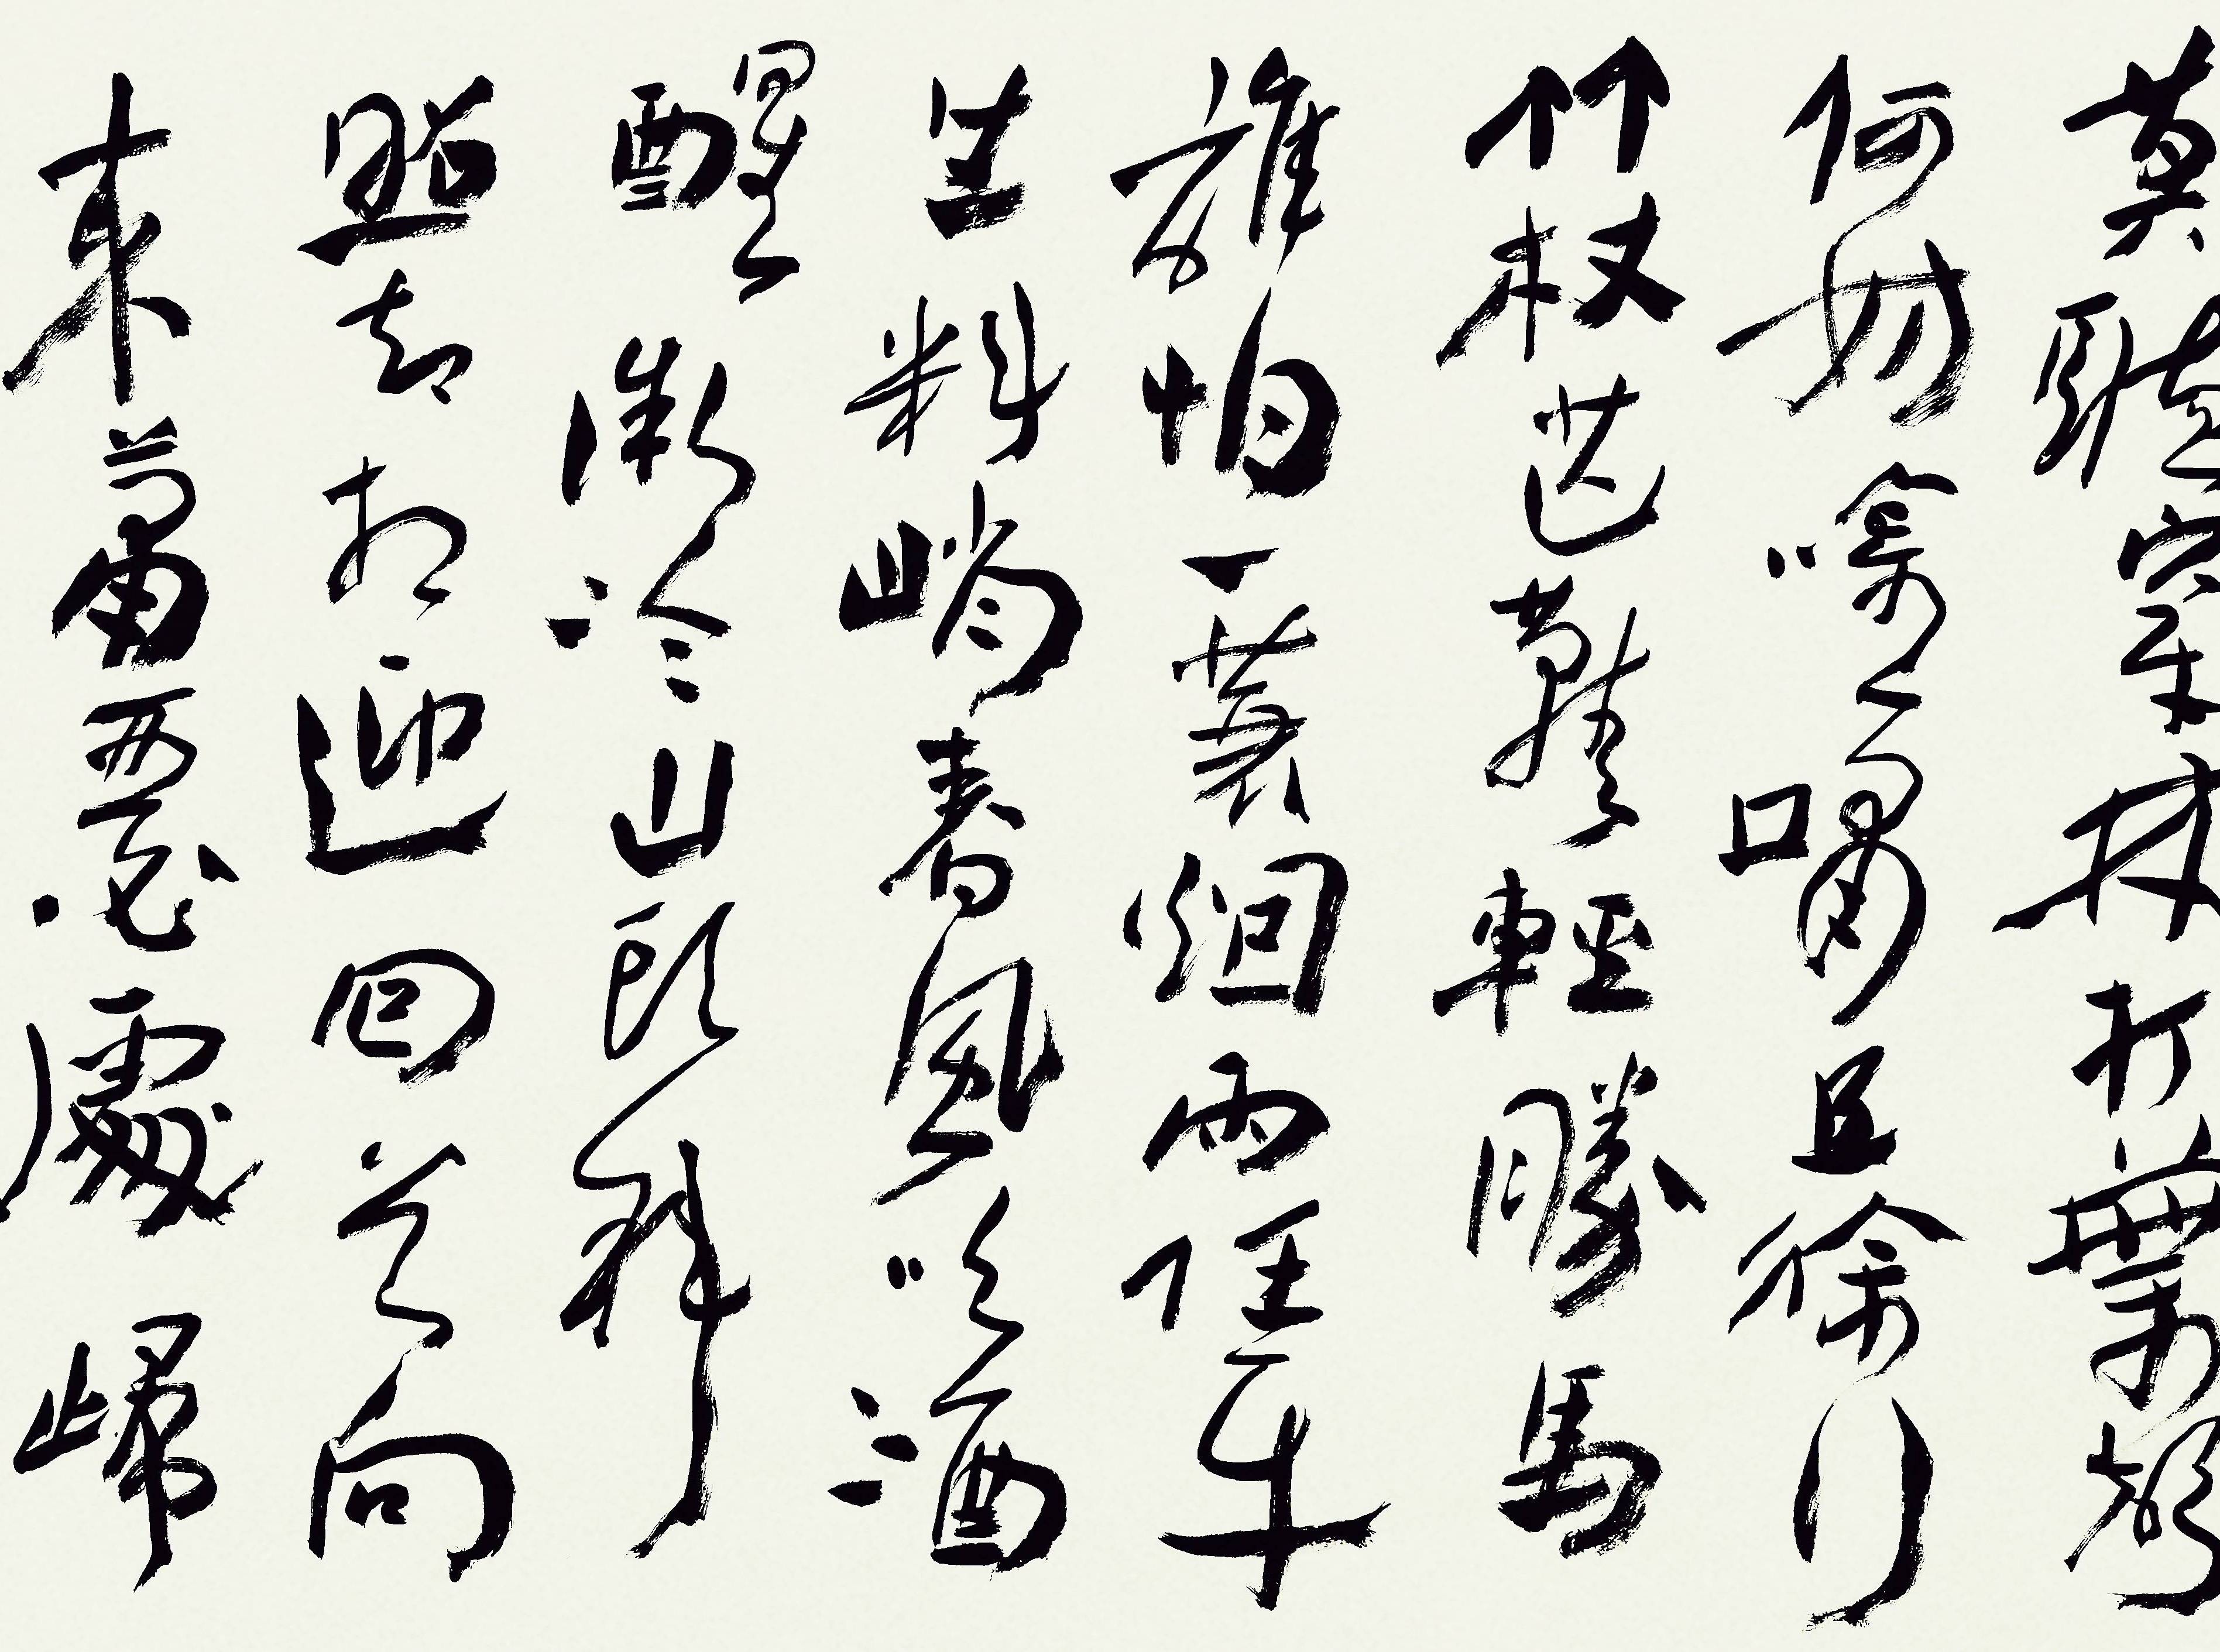 莫聽穿林打葉聲
何妨吟嘯且徐行
竹杖芒鞋輕勝馬
誰怕一蓑烟雨任平
生料峭春風吹酒
醒微冷山頭斜
照却相迎回首向
來蕭瑟處歸